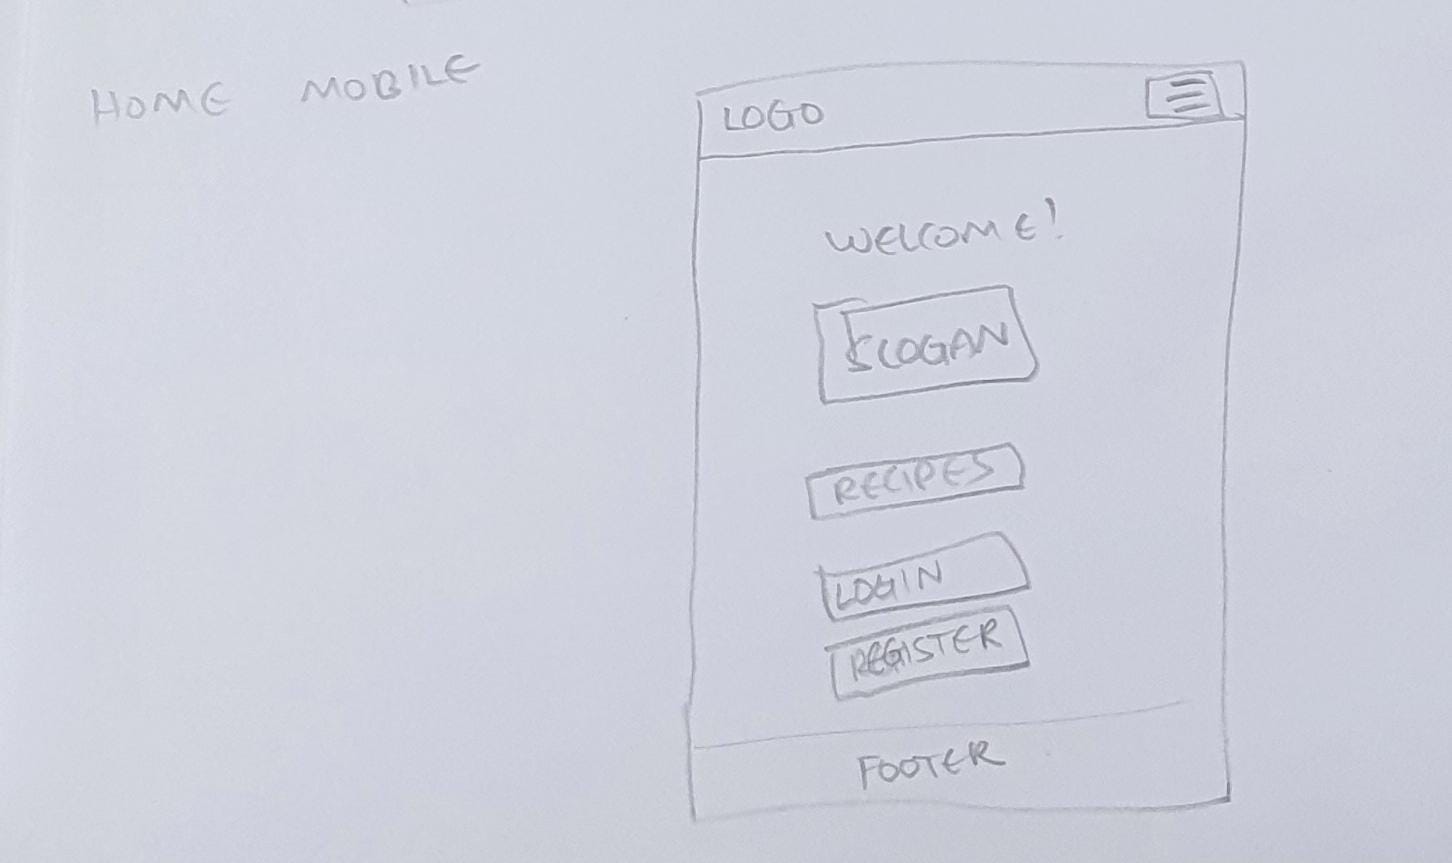 HOME MOBILE
LOGO
WELCOME!
SLOGAN
RECIPES
LOGIN
REGISTER
FOOTER